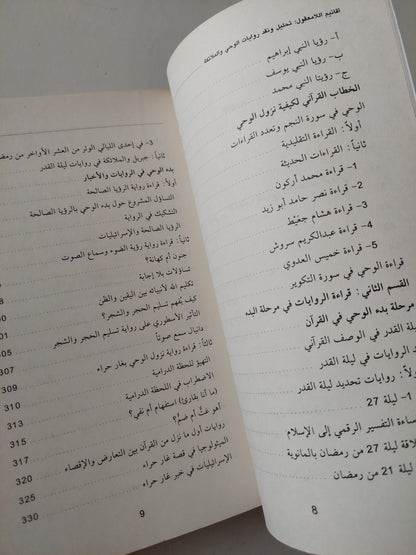 اقانيم اللامعقول: تحليل ونقد روايات الوحي والملائكة
أ- رؤيا النبي إبراهيم
ب- رؤيا النبي يوسف
ج- رؤيتا النبي محمد
الخطاب القرآني لكيفية نزول الوحي
الوحي في سورة النجم وتعدد القراءات
أولاً: القراءة التقليدية
ثانياً: القراءات الحديثة
1- قراءة محمد أركون
2- قراءة نصر حامد أبو زيد
3- قراءة هشام جعيّط
4- قراءة عبدالكريم سروش
5- قراءة خميس العدوي
قراءة الوحي في سورة التكوير
القسم الثاني: قراءة الروايات في مرحلة البدء
مرحلة بدء الوحي في القرآن
القدر في الوصف القرآني
الروايات في ليلة القدر
روايات تحديد ليلة القدر
1- ليلة 27
التفسير الرقمي إلى الإسلام
ليلة 27 من رمضان بالمانوية
ليلة 21 من رمضان
8
3- في إحدى الليالي الوتر من العشر الأواخر من
ثانياً: جبريل والملائكة في روايات ليلة القدر
بدء الوحي في الروايات والأخبار
أولاً: قراءة رواية الرؤيا الصالحة
التساؤل المشروع حول بدء الوحي بالرؤيا الصالحة
التشكيك في الرواية
الرؤيا الصالحة والإسرائيليات
ثانياً: قراءة رواية رؤية الضوء وسماع الصوت
جنون أم كهانة؟
تساؤلات بلا إجابة
تكليم الله لأنبيائه بين اليقين والظن
كيف يُفهم تسليم الحجر والشجر؟
التأثير الأسطوري على رواية تسليم الحجر والشجر
دانيال سمع صوتاً
ثالثاً: قراءة رواية نزول الوحي بغار حراء 307
التهيؤ للحظة الدرامية 309
الاضطراب في اللحظة الدرامية 310
(ما أنا بقارئ) استفهام أم نفي؟ 313
أهو غتٌّ أم ضمٌّ؟ 315
روايات أول ما نزل من القرآن بين التعارض والإقصاء 317
الميثولوجيا في قصة غار حراء 320
الإسرائيليات في خبر غار حراء 325
330
9